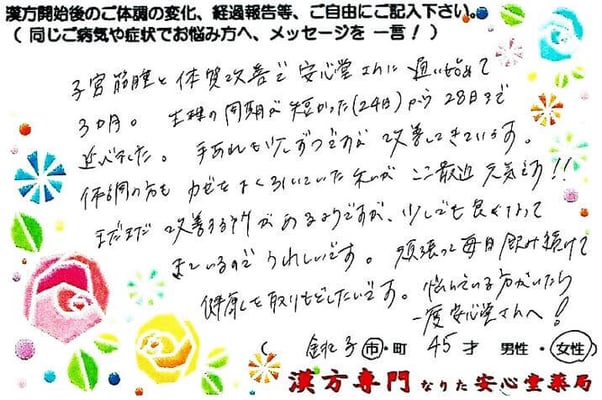 漢方開始後のご体調の変化、経過報告等、ご自由にご記入下さい。
(同じご病気や症状でお悩み方へ、メッセージを 一言!)
子宮筋腫と体質改善で安心堂さんに通い始めて
3カ月。生理の周期が短かった(24日)から28日まで
延びました。手あれも少しずつですが改善してきています。
体調の方も カゼをよく引いていた私が ここ最近 元気です!!
まだまだ 改善する所があるようですが、少しでも良くなって
きているので うれしいです。頑張って毎日飲み続けて
健康を取りもどしたいです。悩んでいる方がいたら
一度安心堂さんへ!
(銚子 市・町 45才 男性・女性)
漢方専門 なりた安心堂薬局